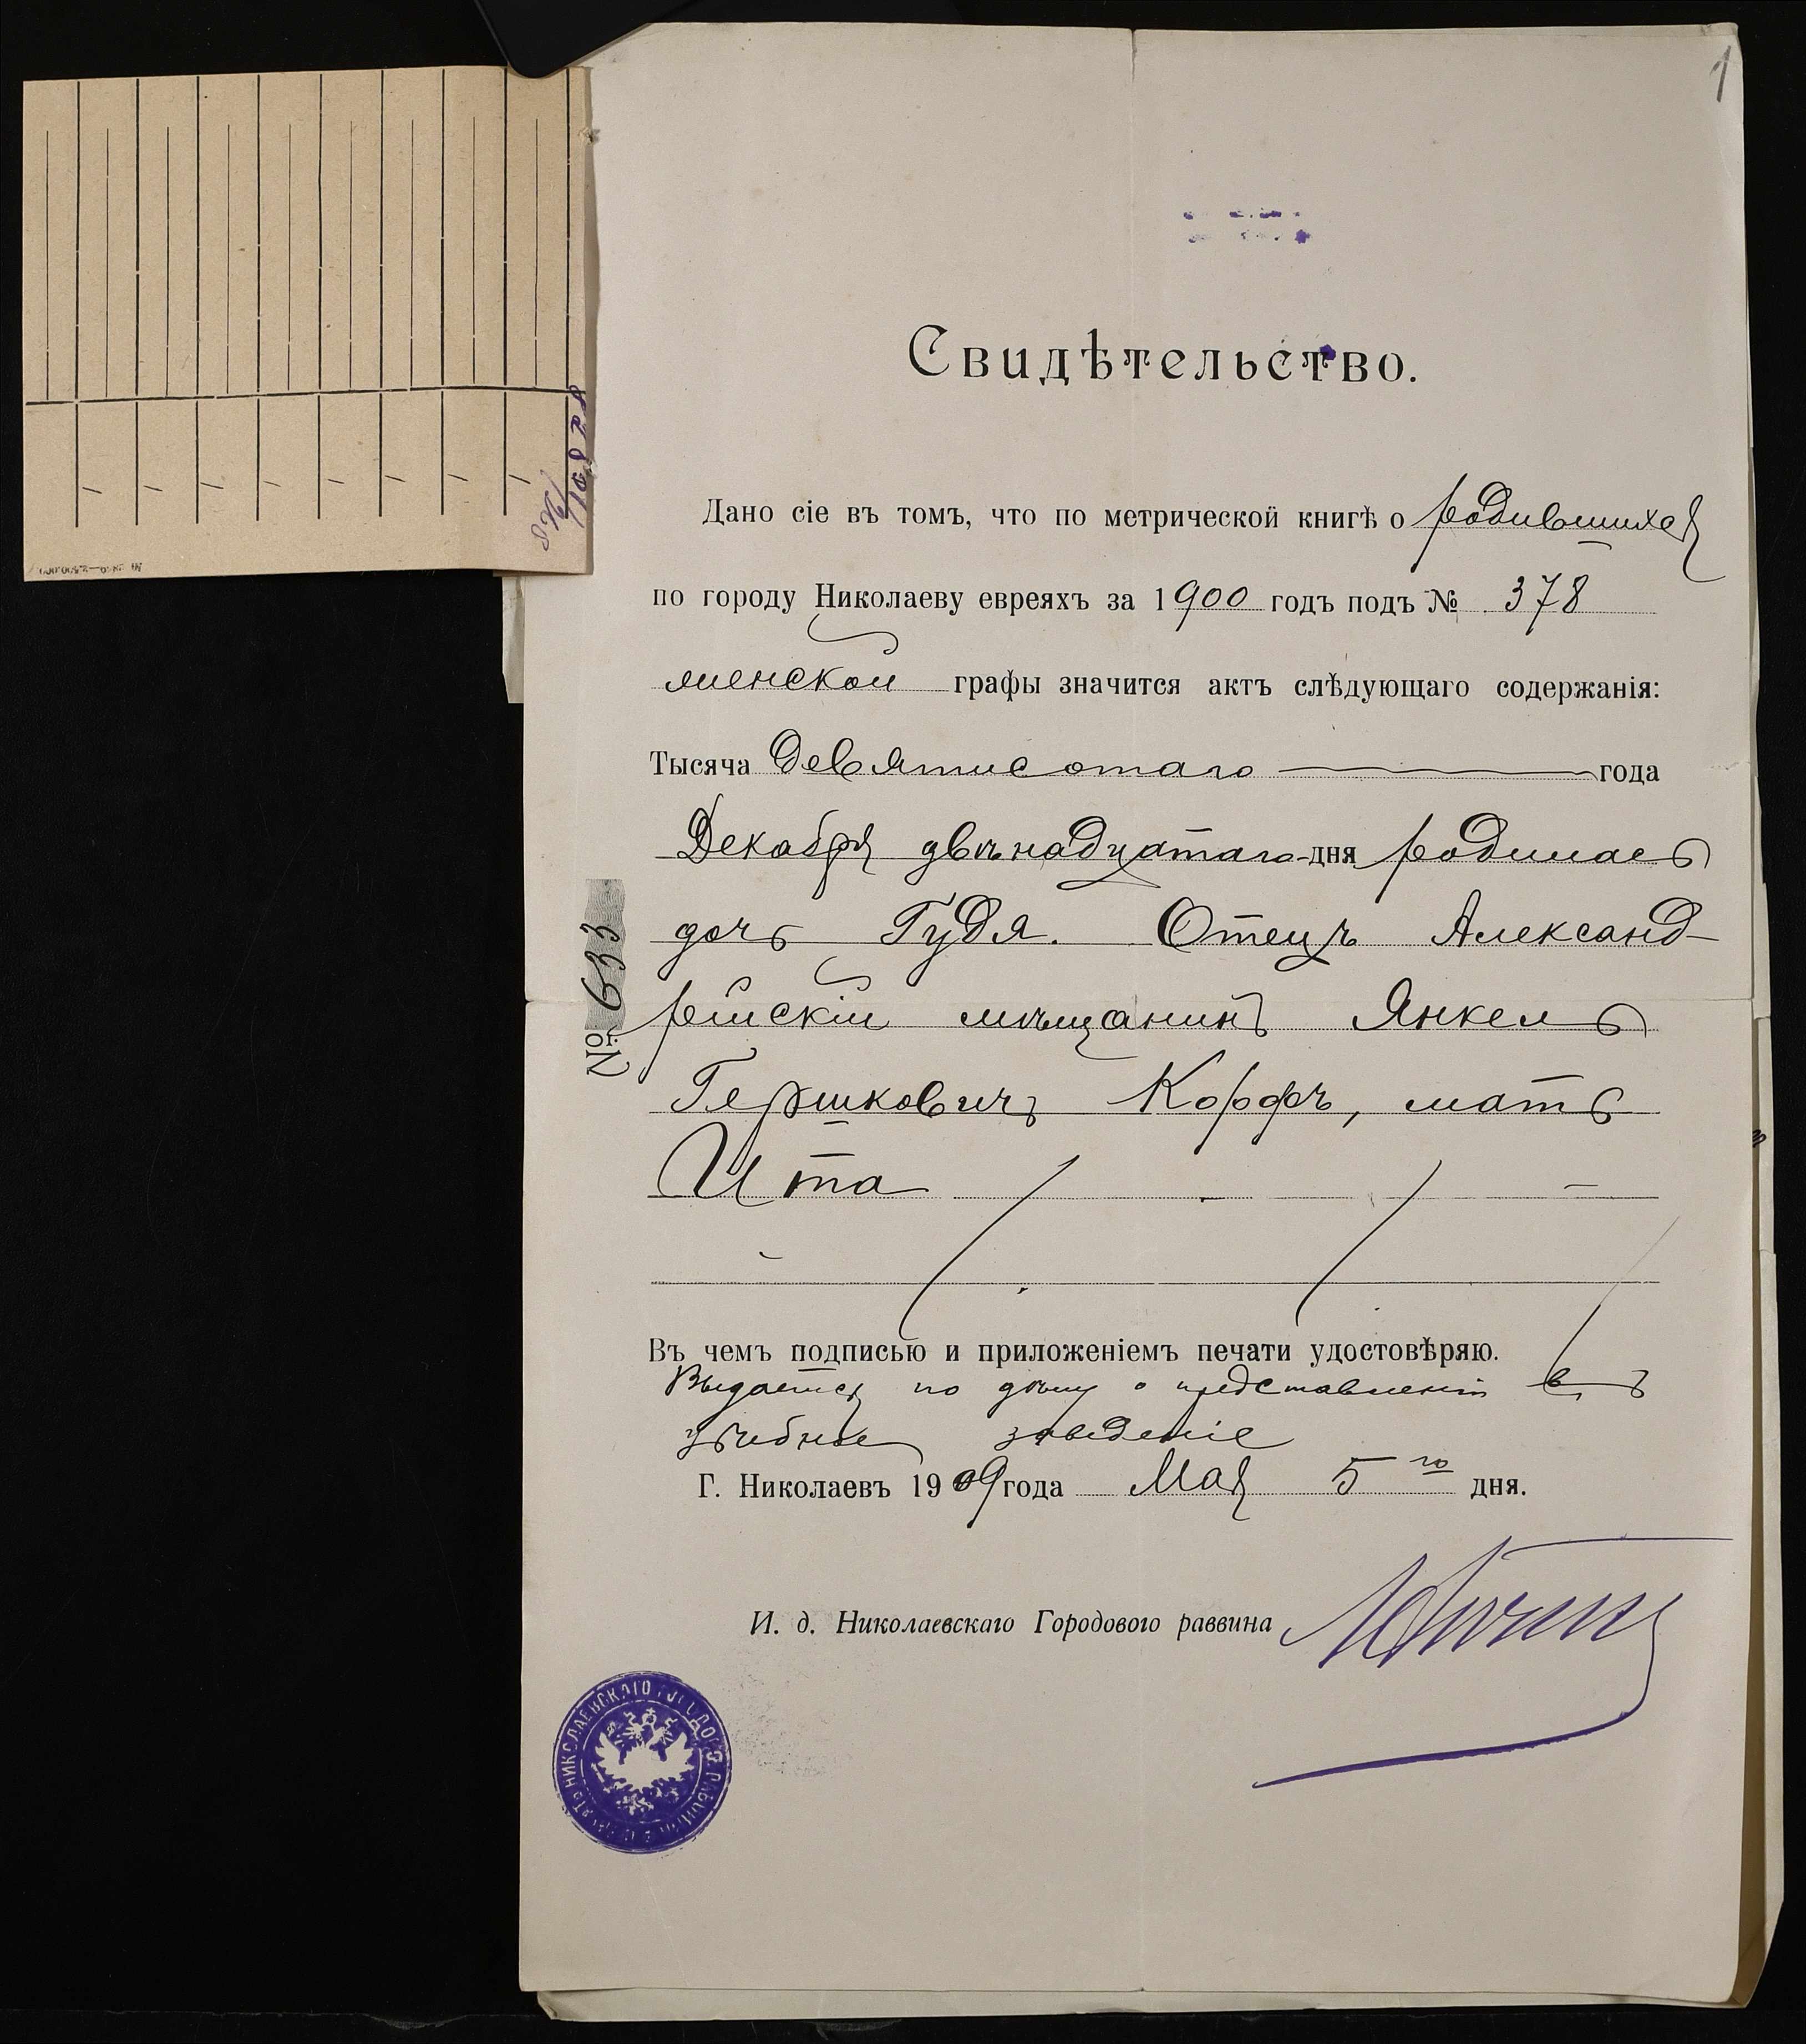 1
Свидѣтельство.
Дано сіе въ томъ, что по метрической книгѣ о родившихся
по городу Николаеву евреяхъ за 1900 годъ подъ № 378
женской графы значится актъ слѣдующаго содержанія:
Тысяча девятисотаго года
Декабря двѣнадцатаго дня родилась
дочь Гудя. Отецъ Александ-
рійскій мѣщанинъ Янкель
Гершковичъ Корфъ, мать
Ита
Въ чемъ подписью и приложеніемъ печати удостовѣряю.
Выдается по дѣлу о представленіи въ
учебное заведеніе
Г. Николаевъ 1909 года Мая 5го дня.
И. д. Николаевскаго Городового раввина
№ 633
НИКОЛАЕВСКАГО ГОРОДОВ. РАВВИНА